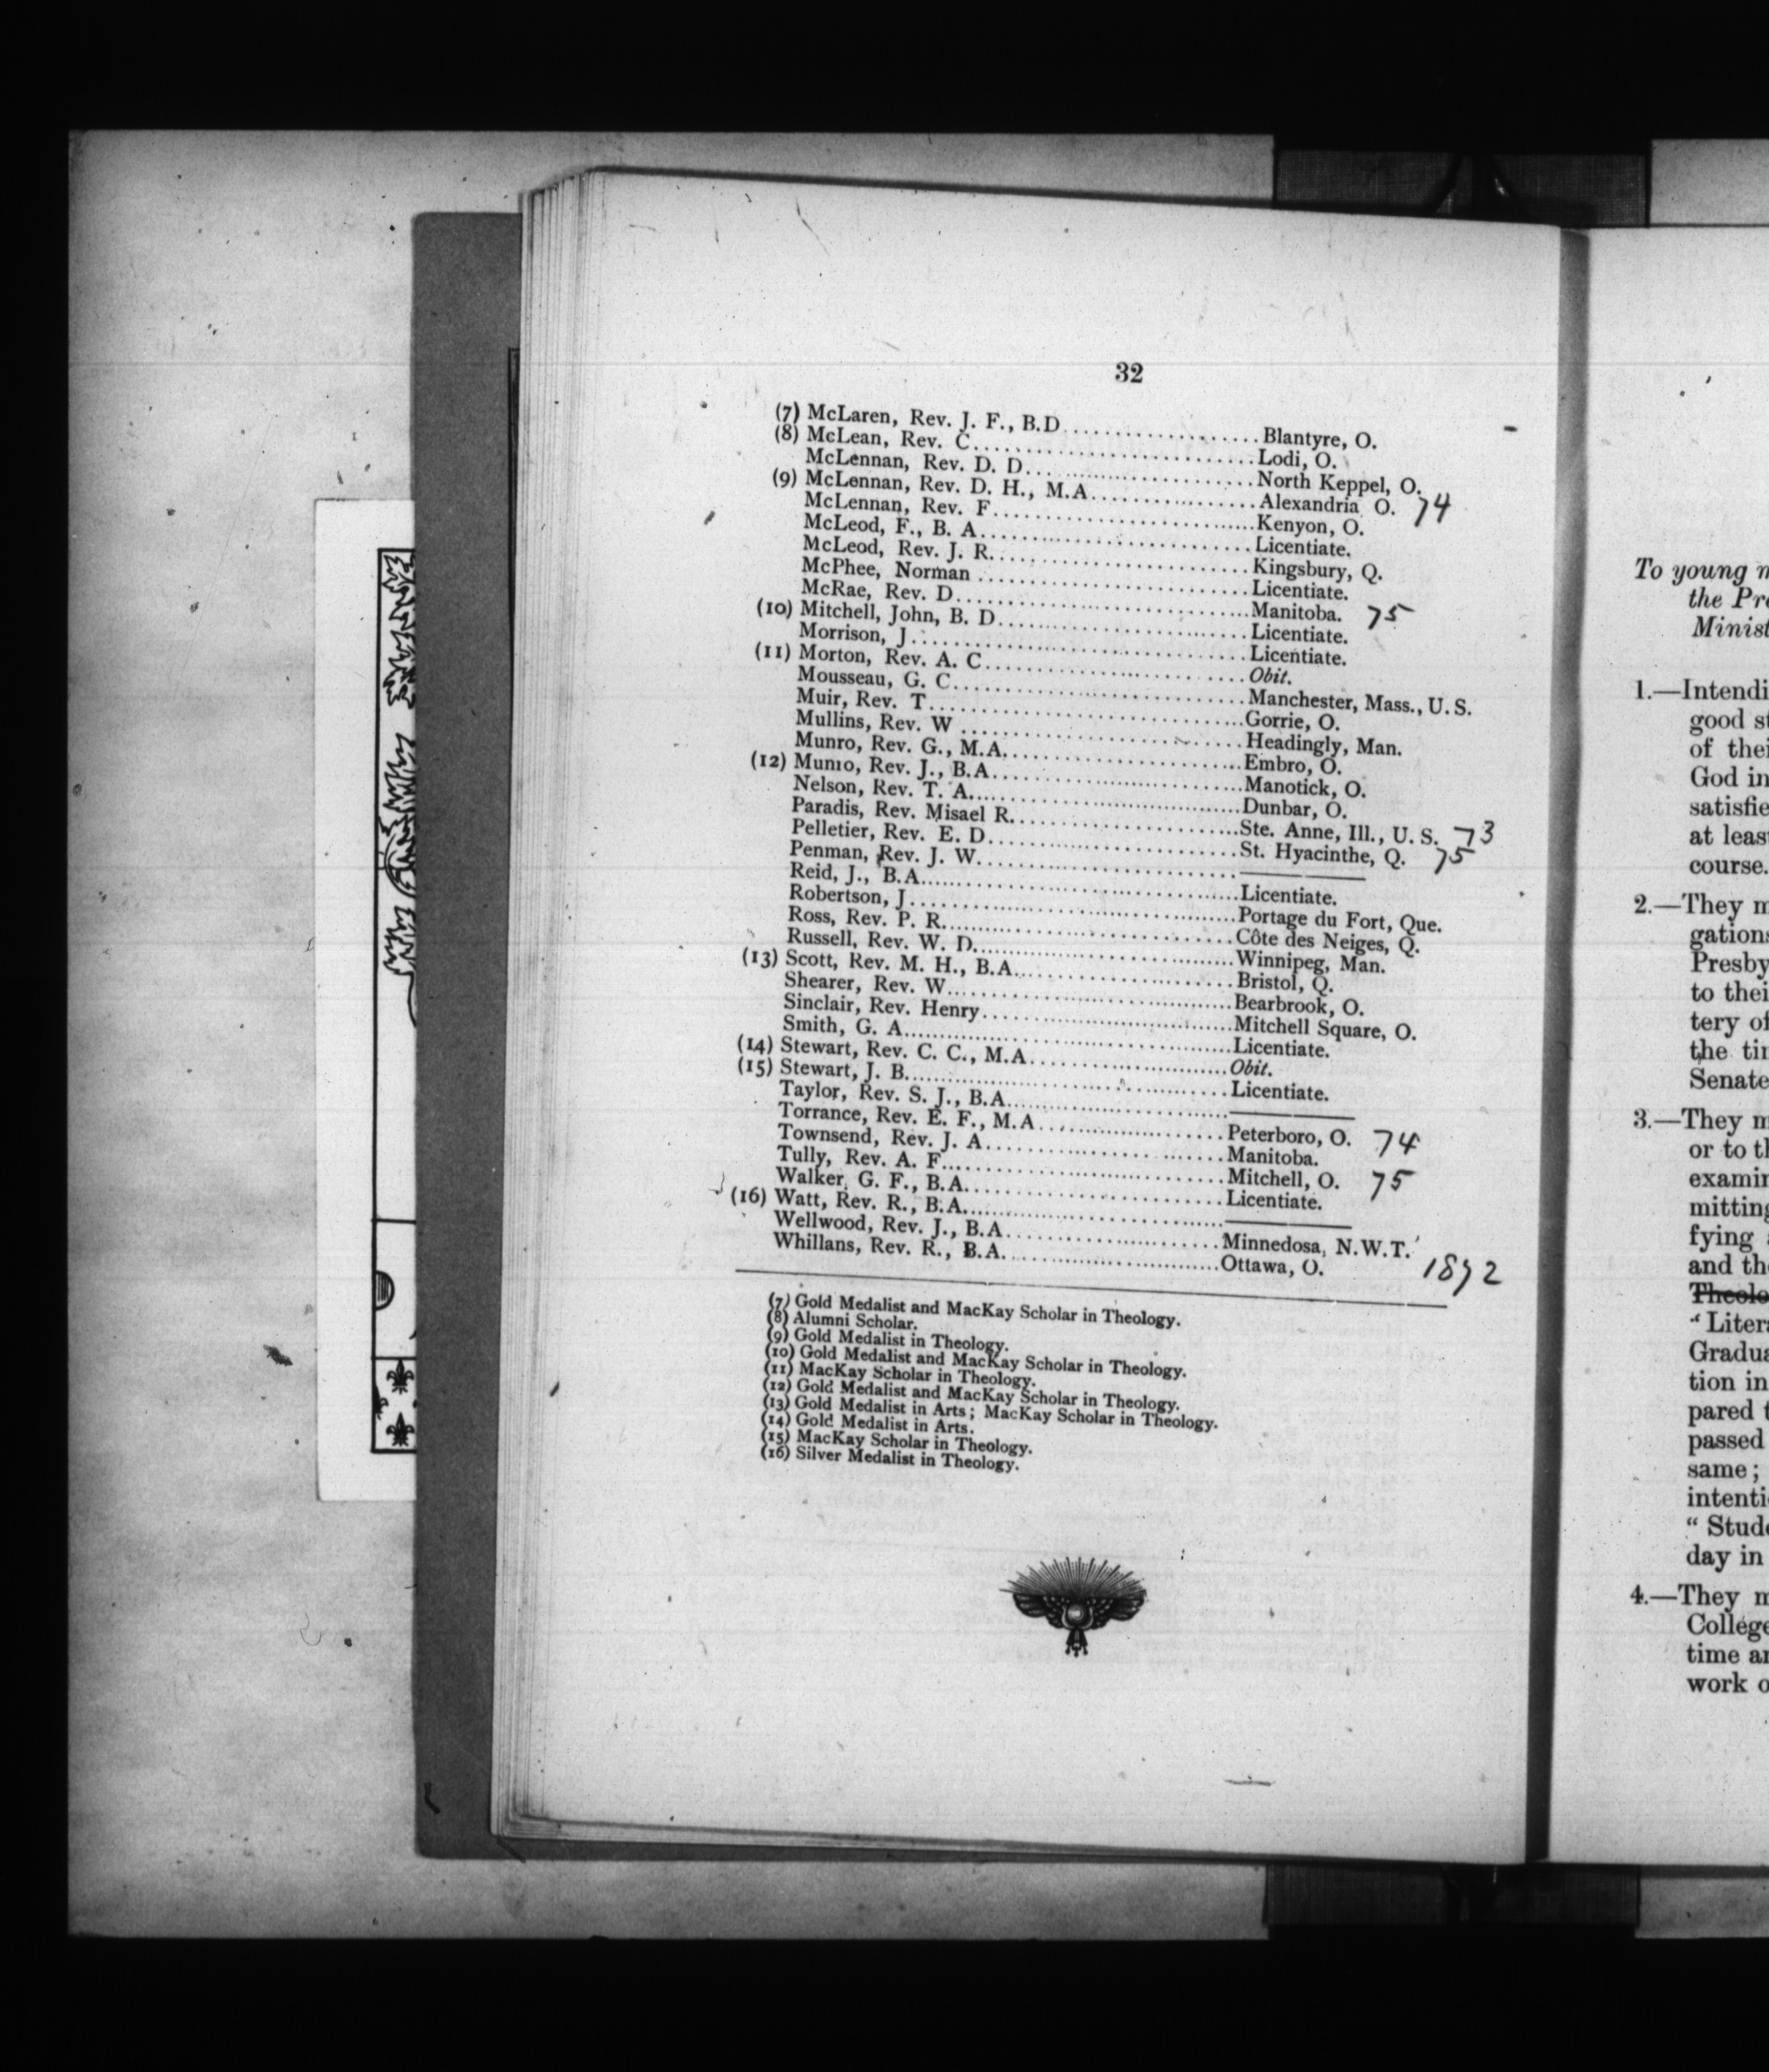 32
(7) McLaren, Rev. J. F., B.D........Blantyre, O.
(8) McLean, Rev. C........Lodi, O.
McLennan, Rev. D. D........North Keppel, O.
(9) McLennan, Rev. D. H., M.A........Alexandria O. 74
McLennan, Rev. F........Kenyon, O.
McLeod, F., B. A........Licentiate.
McLeod, Rev. J. R........Kingsbury, Q.
McPhee, Norman........Licentiate.
McRae, Rev. D........Manitoba. 75
(10) Mitchell, John, B. D........Licentiate.
Morrison, J........Licentiate.
(11) Morton, Rev. A. C........Obit.
Mousseau, G. C........Manchester, Mass., U. S.
Muir, Rev. T........Gorrie, O.
Mullins, Rev. W........Headingly, Man.
Munro, Rev. G., M.A........Embro, O.
(12) Munro, Rev. J., B.A........Manotick, O.
Nelson, Rev. T. A........Dunbar, O.
Paradis, Rev. Misael R........Ste. Anne, Ill., U. S. 73
Pelletier, Rev. E. D........St. Hyacinthe, Q. 75
Penman, Rev. J. W........———
Reid, J., B.A........Licentiate.
Robertson, J........Portage du Fort, Que.
Ross, Rev. P. R........Côte des Neiges, Q.
Russell, Rev. W. D........Winnipeg, Man.
(13) Scott, Rev. M. H., B.A........Bristol, Q.
Shearer, Rev. W........Bearbrook, O.
Sinclair, Rev. Henry........Mitchell Square, O.
Smith, G. A........Licentiate.
(14) Stewart, Rev. C. C., M.A........Obit.
(15) Stewart, J. B........Licentiate.
Taylor, Rev. S. J., B.A........———
Torrance, Rev. E. F., M.A........Peterboro, O. 74
Townsend, Rev. J. A........Manitoba.
Tully, Rev. A. F........Mitchell, O. 75
Walker, G. F., B.A........Licentiate.
(16) Watt, Rev. R., B.A........———
Wellwood, Rev. J., B.A........Minnedosa, N.W.T.
Whillans, Rev. R., B.A........Ottawa, O. 1872
(7) Gold Medalist and MacKay Scholar in Theology.
(8) Alumni Scholar.
(9) Gold Medalist in Theology.
(10) Gold Medalist and MacKay Scholar in Theology.
(11) MacKay Scholar in Theology.
(12) Gold Medalist and MacKay Scholar in Theology.
(13) Gold Medalist in Arts; MacKay Scholar in Theology.
(14) Gold Medalist in Arts.
(15) MacKay Scholar in Theology.
(16) Silver Medalist in Theology.
To young
the
1.—
good
of
God in
satisfie
at
course.
2.—They
gations
Presby
to
tery of
the
Senate
3.—They
or to
mitting
fying
and
"
Gradua
tion in
pared
passed
same;
"
day in
4.—They
College
time
work